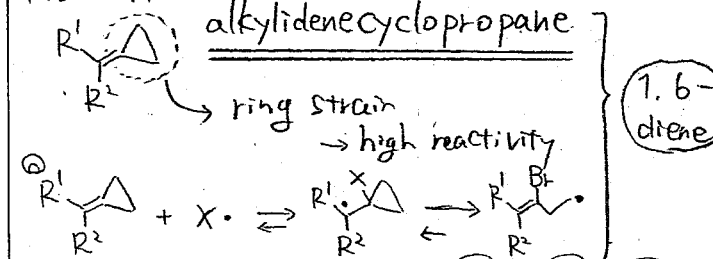 alkylidenecyclopropane
R¹
R²
ring strain
→ high reactivity
1.6-
diene
R¹ R² + X• ⇌ R¹ X • R² ⇌ R¹ Br • R²